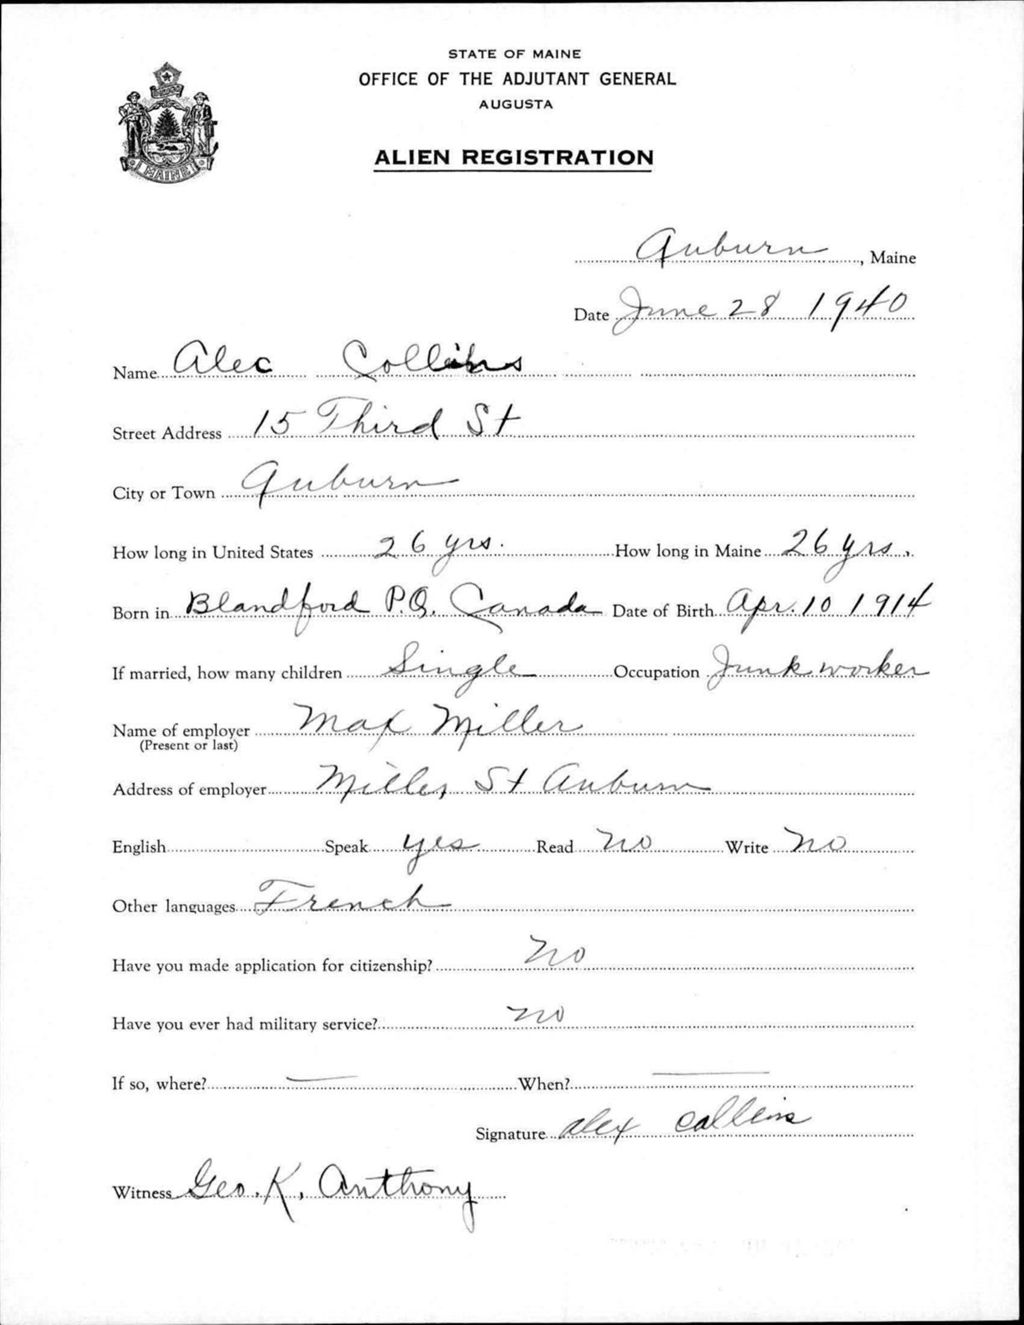 STATE OF MAINE
OFFICE OF THE ADJUTANT GENERAL
AUGUSTA
ALIEN REGISTRATION
MAINE
Auburn, Maine
Date June 28 1940
Name Alec Collins
Street Address 15 Third St
City or Town Auburn
How long in United States 26 yrs. How long in Maine 26 yrs.
Born in Blandford P.Q. Canada Date of Birth Apr. 10 1914
If married, how many children Single Occupation Junk worker
Name of employer Max Miller
(Present or last)
Address of employer Miller St Auburn
English Speak yes Read no Write no
Other languages French
Have you made application for citizenship? no
Have you ever had military service? no
If so, where? — When? —
Signature alex collins
Witness Geo. K. Anthony